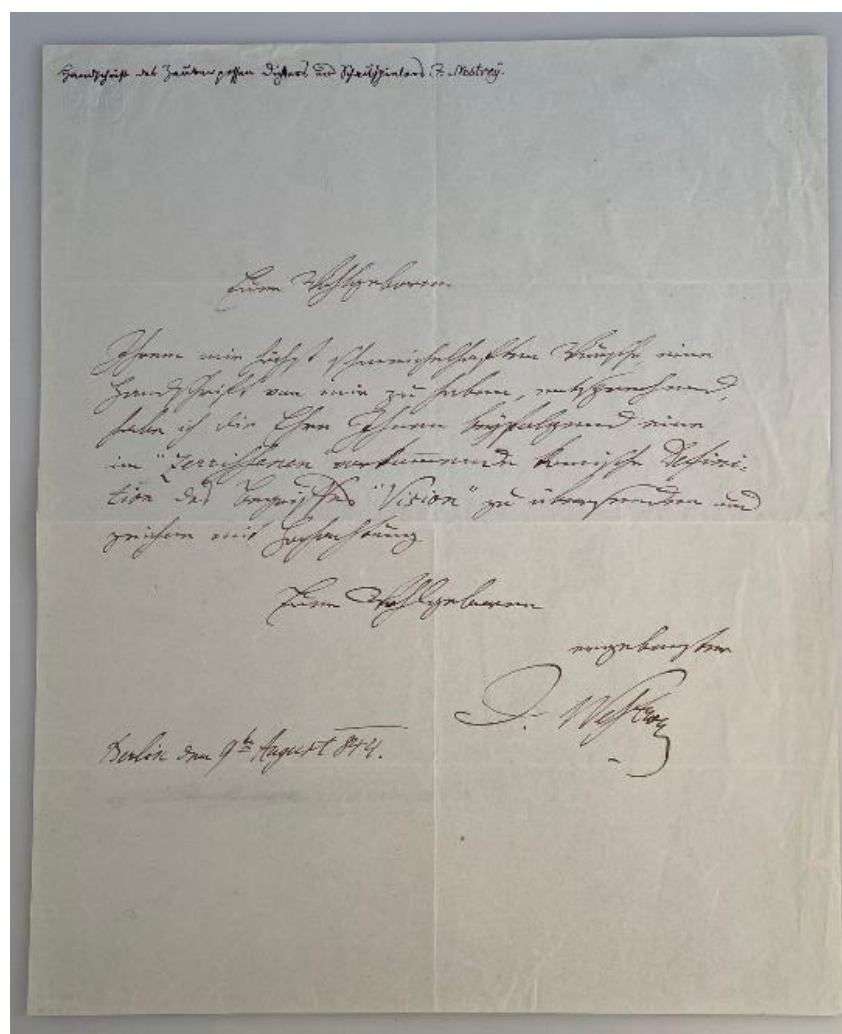 Handschrift des Zauberpossen Dichters und Schauspielers J. Nestroy.
Euer Wohlgeboren
Ihrem mir höchst schmeichelhaften Wunsche, eine
Handschrift von mir zu haben, entsprechend,
habe ich die Ehre Ihnen beyfolgend eine
im "Zerrissenen" vorkommende komische Defini-
tion des Begriffes "Vision" zu übersenden und
zeichne mit Hochachtung
Euer Wohlgeboren
ergebenster
J. Nestroy
Berlin den 9ten August 844.